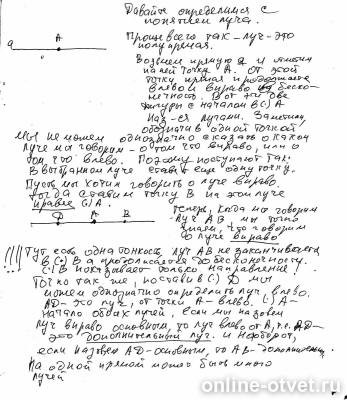 Давайте определимся с
понятием луча.
Проще всего так - луч - это
полупрямая.
a A
Возьмем прямую a и отметим
на ней точку A. От этой
точки прямая и продолжается
влево и вправо до беско-
нечности. Вот эти две
фигуры с началом в (.) A
наз-ся лучами. Заметим,
обозначив одной точкой,
мы не можем однозначно сказать о каком
луче мы говорим - о том что вправо, или о
том что влево. Поэтому поступают так
В выбранном луче ставят еще одну точку.
Пусть мы хотим говорить о луче вправо
тогда ставим точку B на этом луче
правее (.) A.
D A B
Теперь, когда мы говорим
луч AB, мы точно
знаем, что говорим
о луче вправо
!!!! Тут есть одна тонкость луч AB не заканчивается
в (.) B а продолжается до бесконечности.
(.) B показывает только направление!
Точно так же, поставив (.) D мы
можем однозначно определить луч влево
AD - это луч, от точки A - влево. (.) A -
начало обоих лучей, если мы назовем
луч вправо основным, то луч влево от A, т.е. AD -
это дополнительный луч. И наоборот,
если назовем AD - основным, то AB - дополнительным.
На одной прямой может быть много
лучей
online-otvet.ru